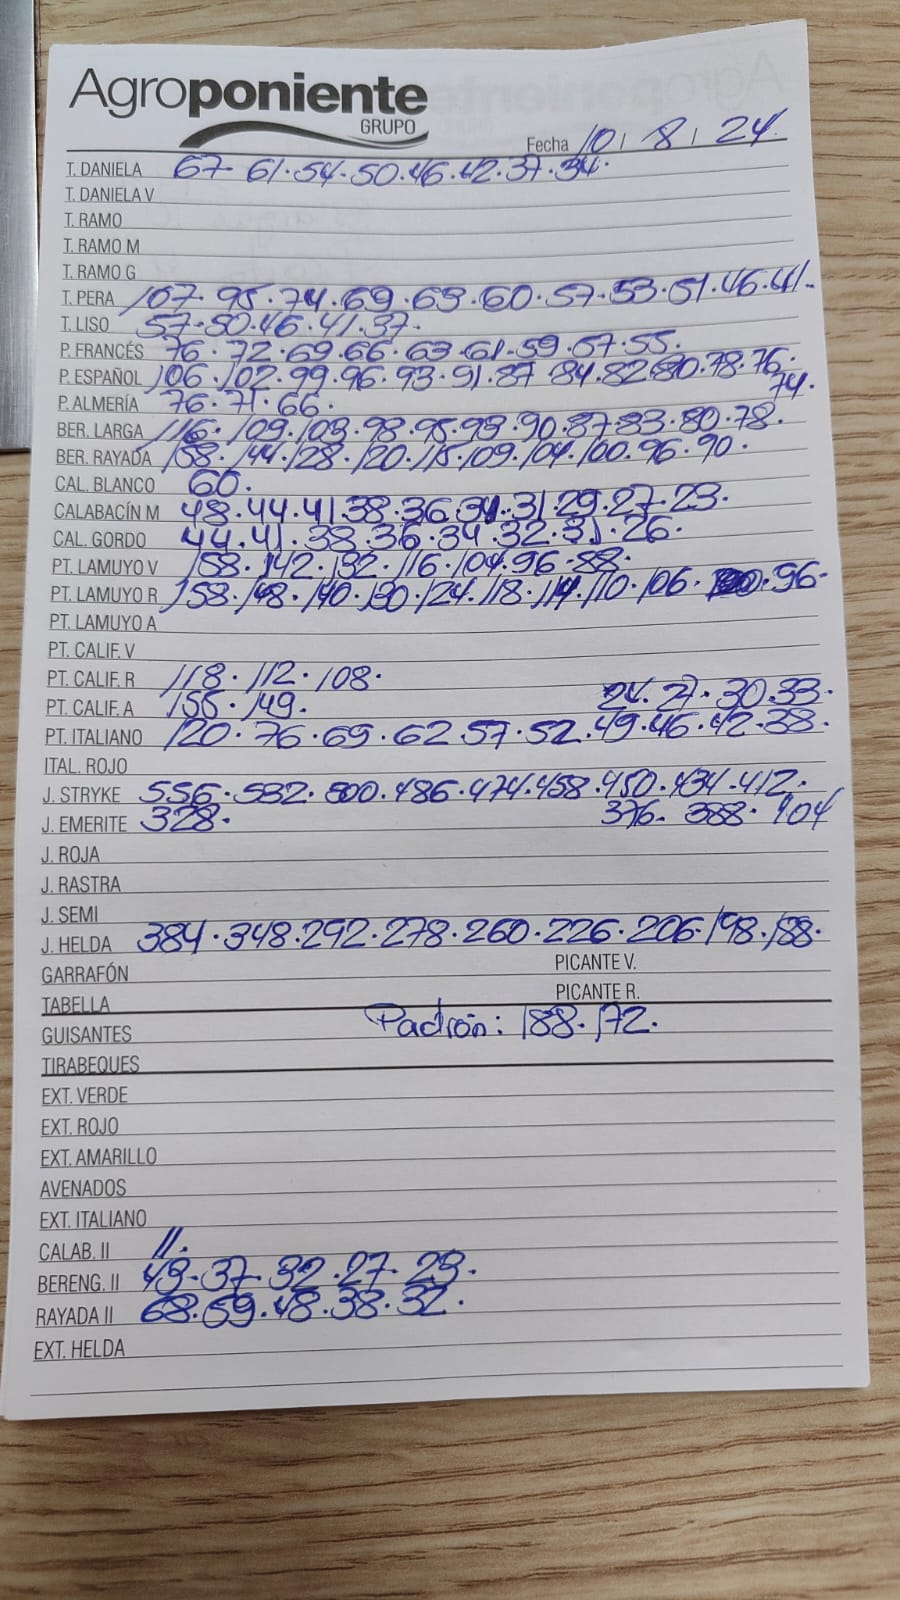 Agroponiente
GRUPO
Fecha 10 / 8 / 24
T. DANIELA 67-61.54.50.46.42.37.34.
T. DANIELA V
T. RAMO
T. RAMO M
T. RAMO G
T. PERA 107.95.74.69.63.60.57.53.51.46.41.
T. LISO 57.50.46.41.37.
P. FRANCÉS 76.72.69.66.63.61.59.57.55.
P. ESPAÑOL 106.102.99.96.93.91.87.84.82.80.78.76.
74.
P. ALMERÍA 76.71.66.
BER. LARGA 116.109.103.98.95.93.90.87.83.80.78.
BER. RAYADA 158.144.128.120.115.109.104.100.96.90.
CAL. BLANCO 60.
CALABACÍN M 48.44.41.38.36.34.31.29.27.23.
CAL. GORDO 44.41.38.36.34.32.31.26.
PT. LAMUYO V 158.142.132.116.104.96.88.
PT. LAMUYO R 158.148.140.130.124.118.114.110.106. .96.
PT. LAMUYO A
PT. CALIF. V
PT. CALIF. R 118.112.108.
PT. CALIF. A 155.149. 24.27.30.33.
PT. ITALIANO 120.76.69.62.57.52.49.46.42.38.
ITAL. ROJO
J. STRYKE 556.532.500.486.474.458.450.434.412.
J. EMERITE 328. 376. 388. 404
J. ROJA
J. RASTRA
J. SEMI
J. HELDA 384.348.292.278.260.226.206.198.188.
GARRAFÓN PICANTE V.
TABELLA PICANTE R.
GUISANTES Padrón: 188.172.
TIRABEQUES
EXT. VERDE
EXT. ROJO
EXT. AMARILLO
AVENADOS
EXT. ITALIANO
CALAB. II 11.
BERENG. II 43.37.32.27.23.
RAYADA II 68.59.48.38.32.
EXT. HELDA